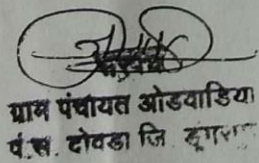 ग्राम पंचायत ओडवाडिया
पं.स. दोवडा जि. डूंगरपुर